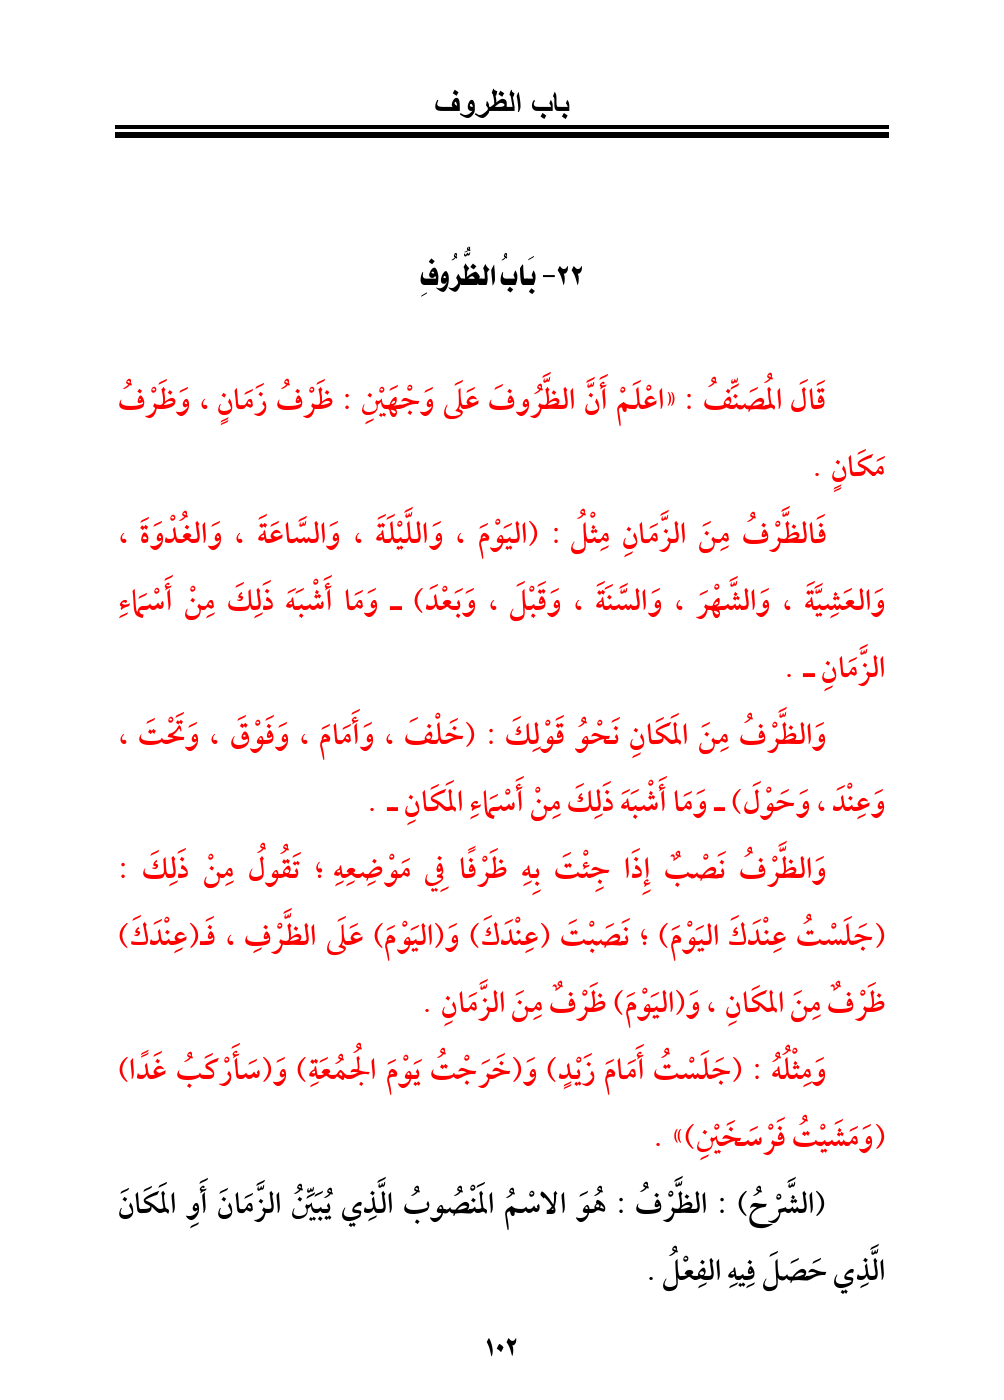 باب الظروف
٢٢- بَابُ الظُّرُوفِ
قَالَ المُصَنِّفُ : «اعْلَمْ أَنَّ الظُّرُوفَ عَلَى وَجْهَيْنِ : ظَرْفُ زَمَانٍ ، وَظَرْفُ
مَكَانٍ .
فَالظَّرْفُ مِنَ الزَّمَانِ مِثْلُ : (اليَوْمَ ، وَاللَّيْلَةَ ، وَالسَّاعَةَ ، وَالغُدْوَةَ ،
وَالعَشِيَّةَ ، وَالشَّهْرَ ، وَالسَّنَةَ ، وَقَبْلَ ، وَبَعْدَ) ـ وَمَا أَشْبَهَ ذَلِكَ مِنْ أَسْمَاءِ
الزَّمَانِ ـ .
وَالظَّرْفُ مِنَ المَكَانِ نَحْوُ قَوْلِكَ : (خَلْفَ ، وَأَمَامَ ، وَفَوْقَ ، وَتَحْتَ ،
وَعِنْدَ ، وَحَوْلَ) ـ وَمَا أَشْبَهَ ذَلِكَ مِنْ أَسْمَاءِ المَكَانِ ـ .
وَالظَّرْفُ نَصْبٌ إِذَا جِئْتَ بِهِ ظَرْفًا فِي مَوْضِعِهِ ؛ تَقُولُ مِنْ ذَلِكَ :
(جَلَسْتُ عِنْدَكَ اليَوْمَ) ؛ نَصَبْتَ (عِنْدَكَ) وَ(اليَوْمَ) عَلَى الظَّرْفِ ، فَـ(عِنْدَكَ)
ظَرْفٌ مِنَ المكَانِ ، وَ(اليَوْمَ) ظَرْفٌ مِنَ الزَّمَانِ .
وَمِثْلُهُ : (جَلَسْتُ أَمَامَ زَيْدٍ) وَ(خَرَجْتُ يَوْمَ الجُمُعَةِ) وَ(سَأَرْكَبُ غَدًا)
(وَمَشَيْتُ فَرْسَخَيْنِ)» .
(الشَّرْحُ) : الظَّرْفُ : هُوَ الاسْمُ المَنْصُوبُ الَّذِي يُبَيِّنُ الزَّمَانَ أَوِ المَكَانَ
الَّذِي حَصَلَ فِيهِ الفِعْلُ .
١٠٢